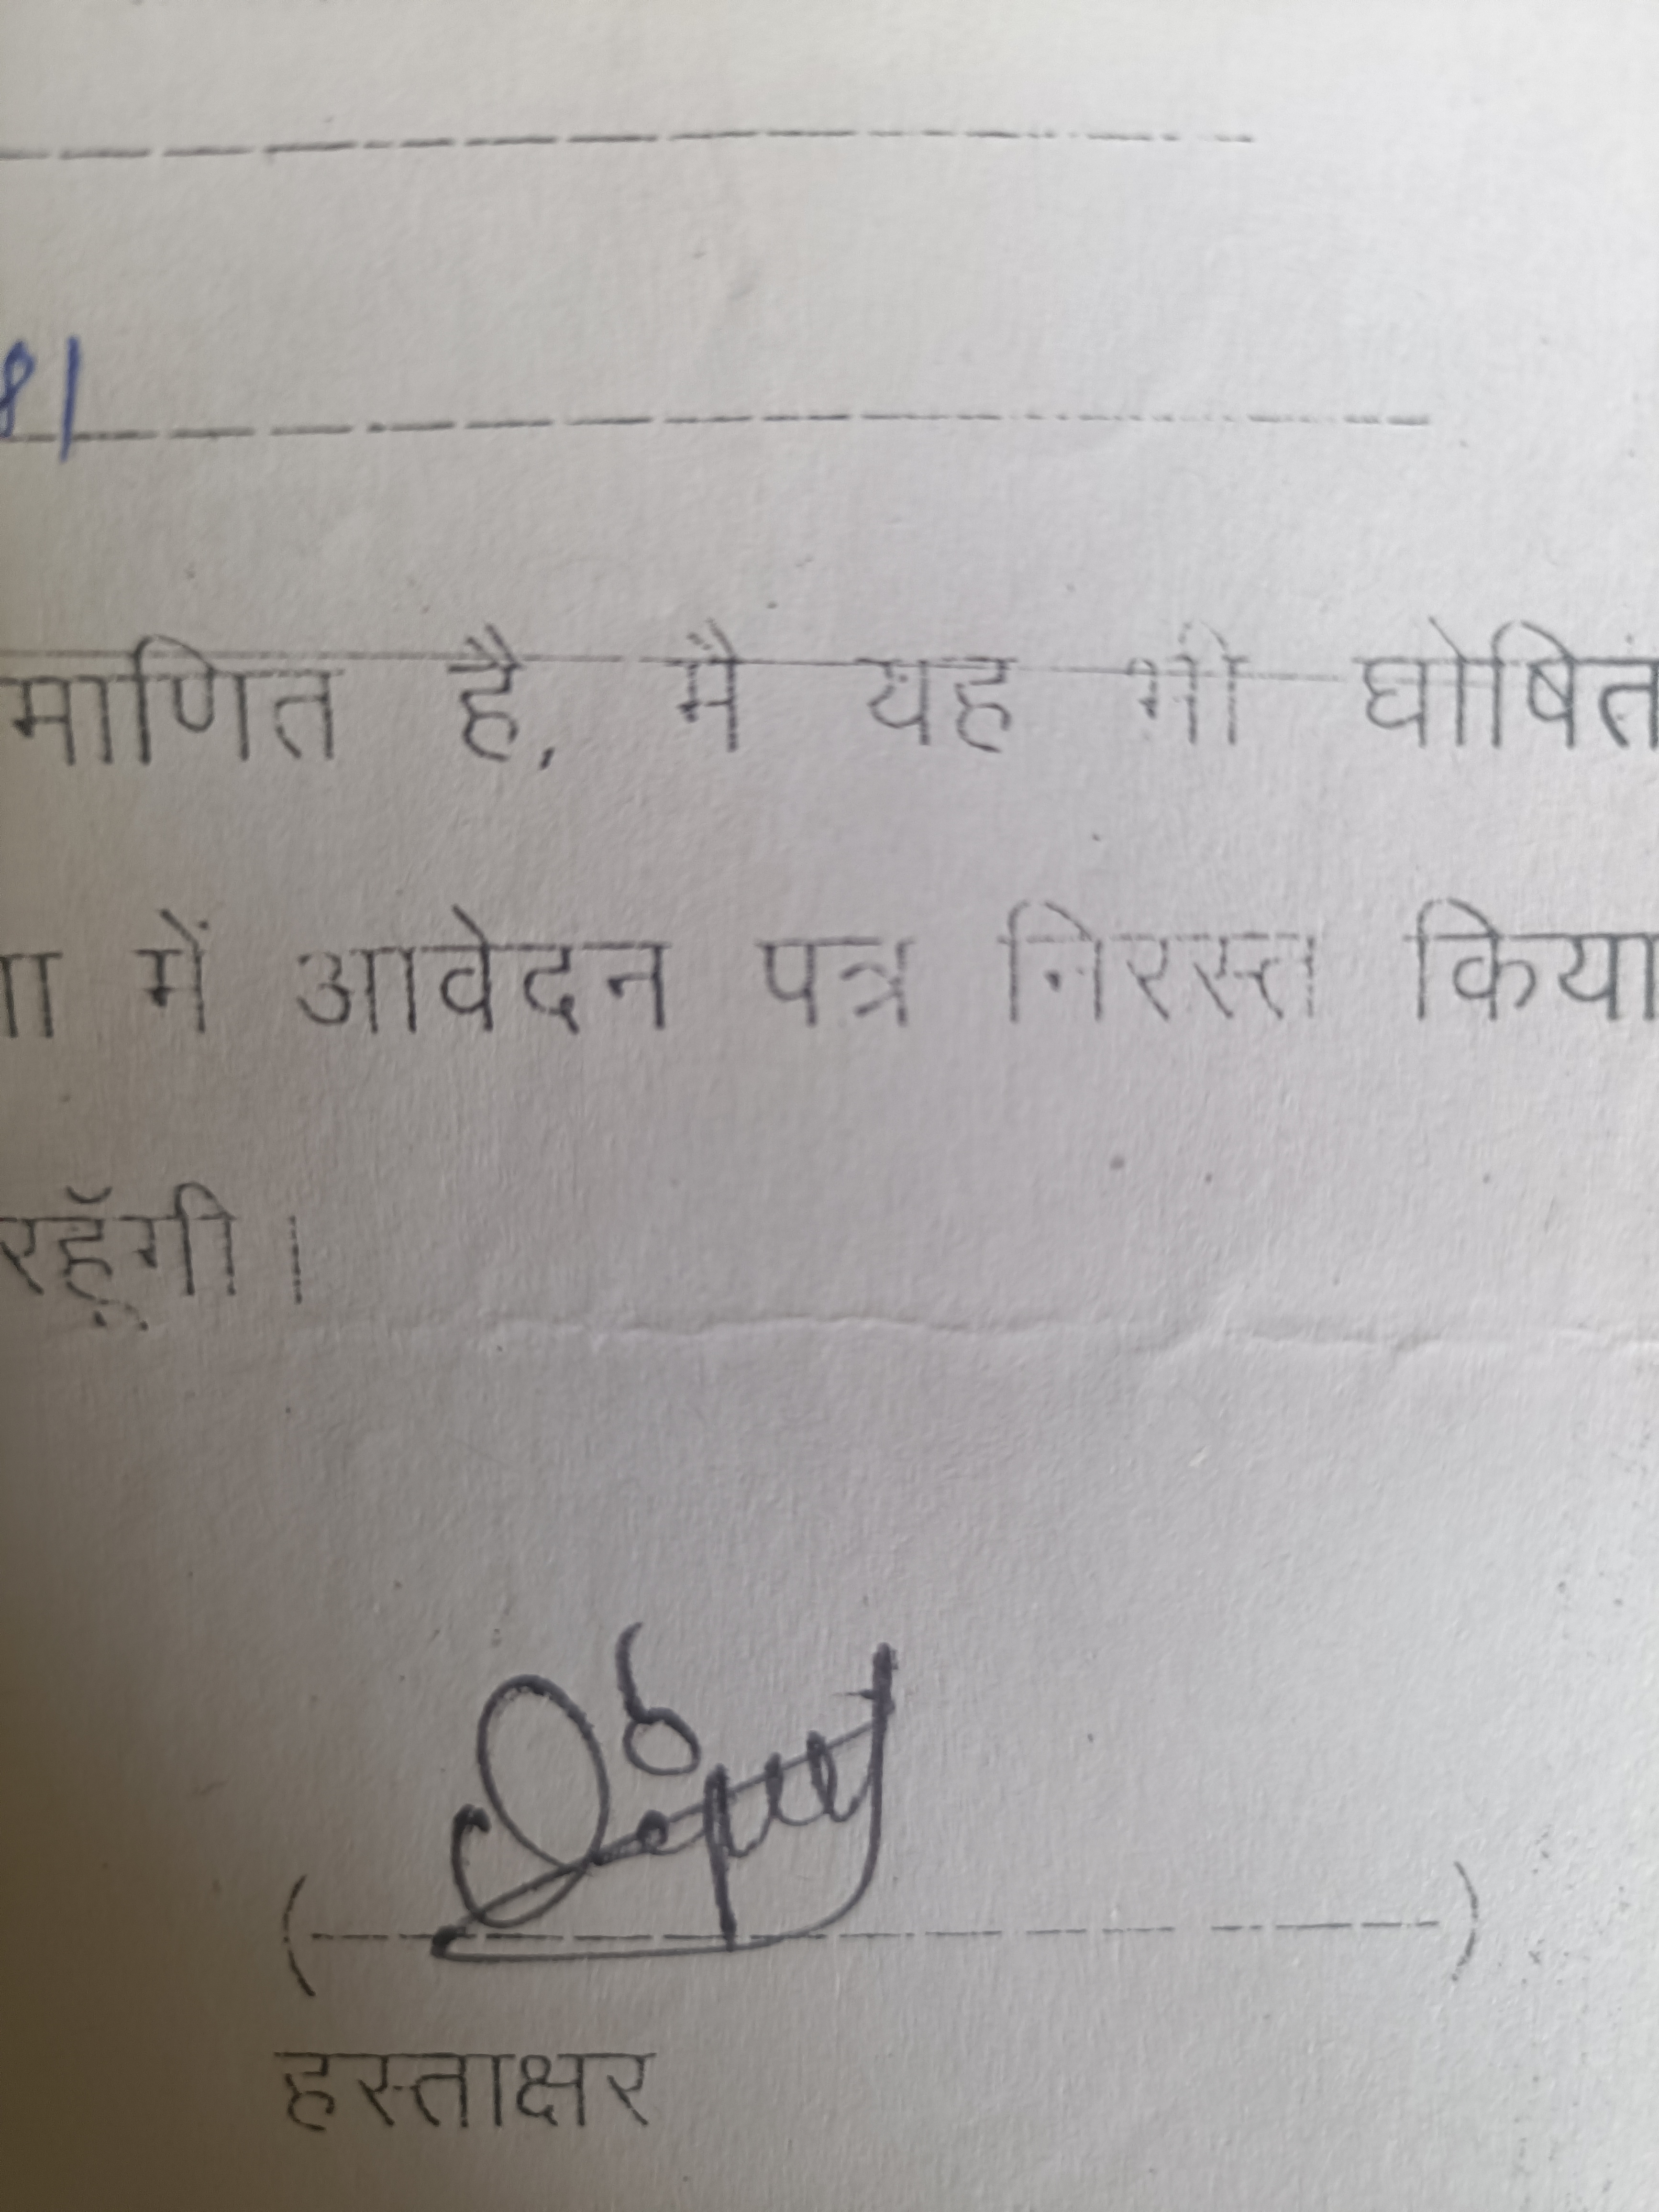 81
माणित है, मै यह भी घोषित
ा में आवेदन पत्र निरस्त किया
रहूँगी।
(---------------)
हस्ताक्षर